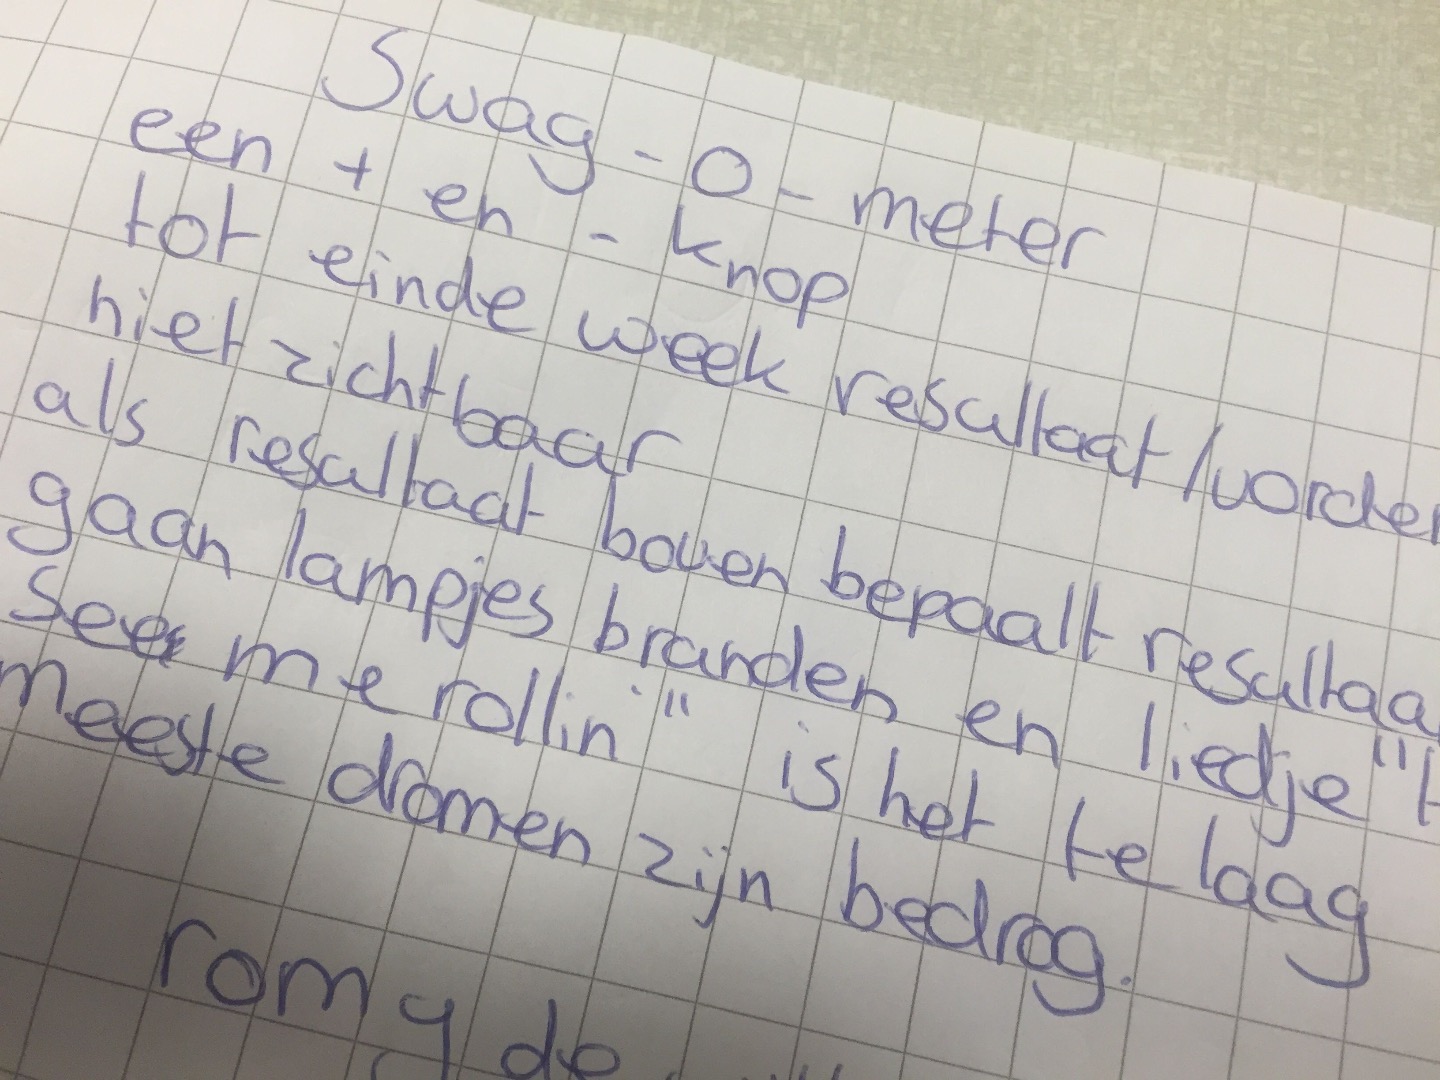 Swag-o-meter
een + en - knop
tot einde week resultaat/vorder
niet zichtbaar
als resultaat boven bepaalt resultaa
gaan lampjes branden en liedje "t
see me rollin'" is het te laag
meeste dromen zijn bedrog.
romy de